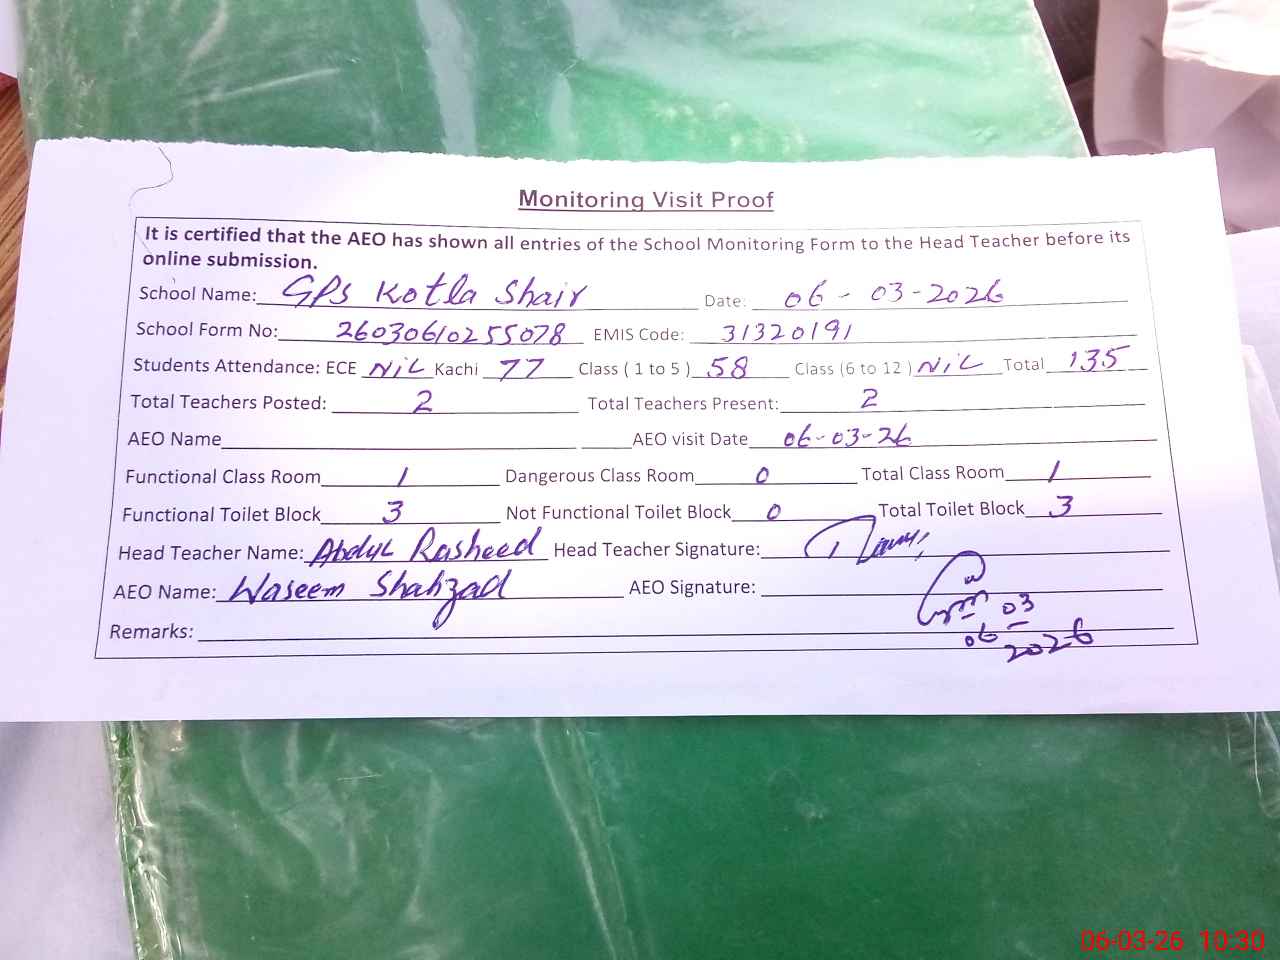 Monitoring Visit Proof
It is certified that the AEO has shown all entries of the School Monitoring Form to the Head Teacher before its
online submission.
School Name: GPS Kotla Shair Date: 06 - 03-2026
School Form No: 26030610255078 EMIS Code: 31320191
Students Attendance: ECE NiL Kachi 77 Class ( 1 to 5 ) 58 Class (6 to 12 ) NiL Total 135
Total Teachers Posted: 2 Total Teachers Present: 2
AEO Name AEO visit Date 06-03-26
Functional Class Room 1 Dangerous Class Room 0 Total Class Room 1
Functional Toilet Block 3 Not Functional Toilet Block 0 Total Toilet Block 3
Head Teacher Name: Abdul Rasheed Head Teacher Signature:
AEO Name: Waseem Shahzad AEO Signature:
06 03
2026
Remarks:
06-03-26 10:30